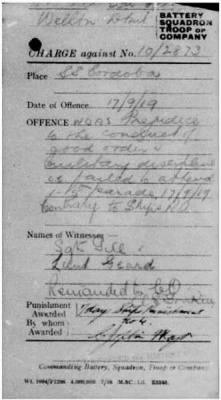 BATTERY
SQUADRON
TROOP OF
COMPANY
CHARGE against No. 10/2873
Place SS Cordoba
Date of Offence 17/9/19
OFFENCE Prejudice
to the conduct of
good order &
military discipline
failed to attend
parade 17/9/19
Contrary to Ships R.O.
Names of Witnesses
Sgt Gill
Lieut Geard
Remanded by CO
Punishment
Awarded
By whom
Awarded
Commanding Battery, Squadron, Troop or Company